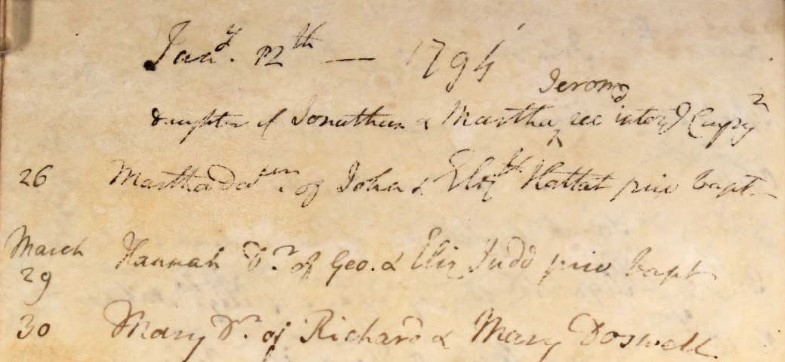 Jany. 12th — 1794
Jerom
daughter of Jonathan & Martha rec into ye Congn
26 Martha Dar. of John & Elizth Hattat priv bapt
March
29 Hannah Dr. of Geo. & Eliz Judd priv bapt
30 Mary Dr. of Richard & Mary Doswell